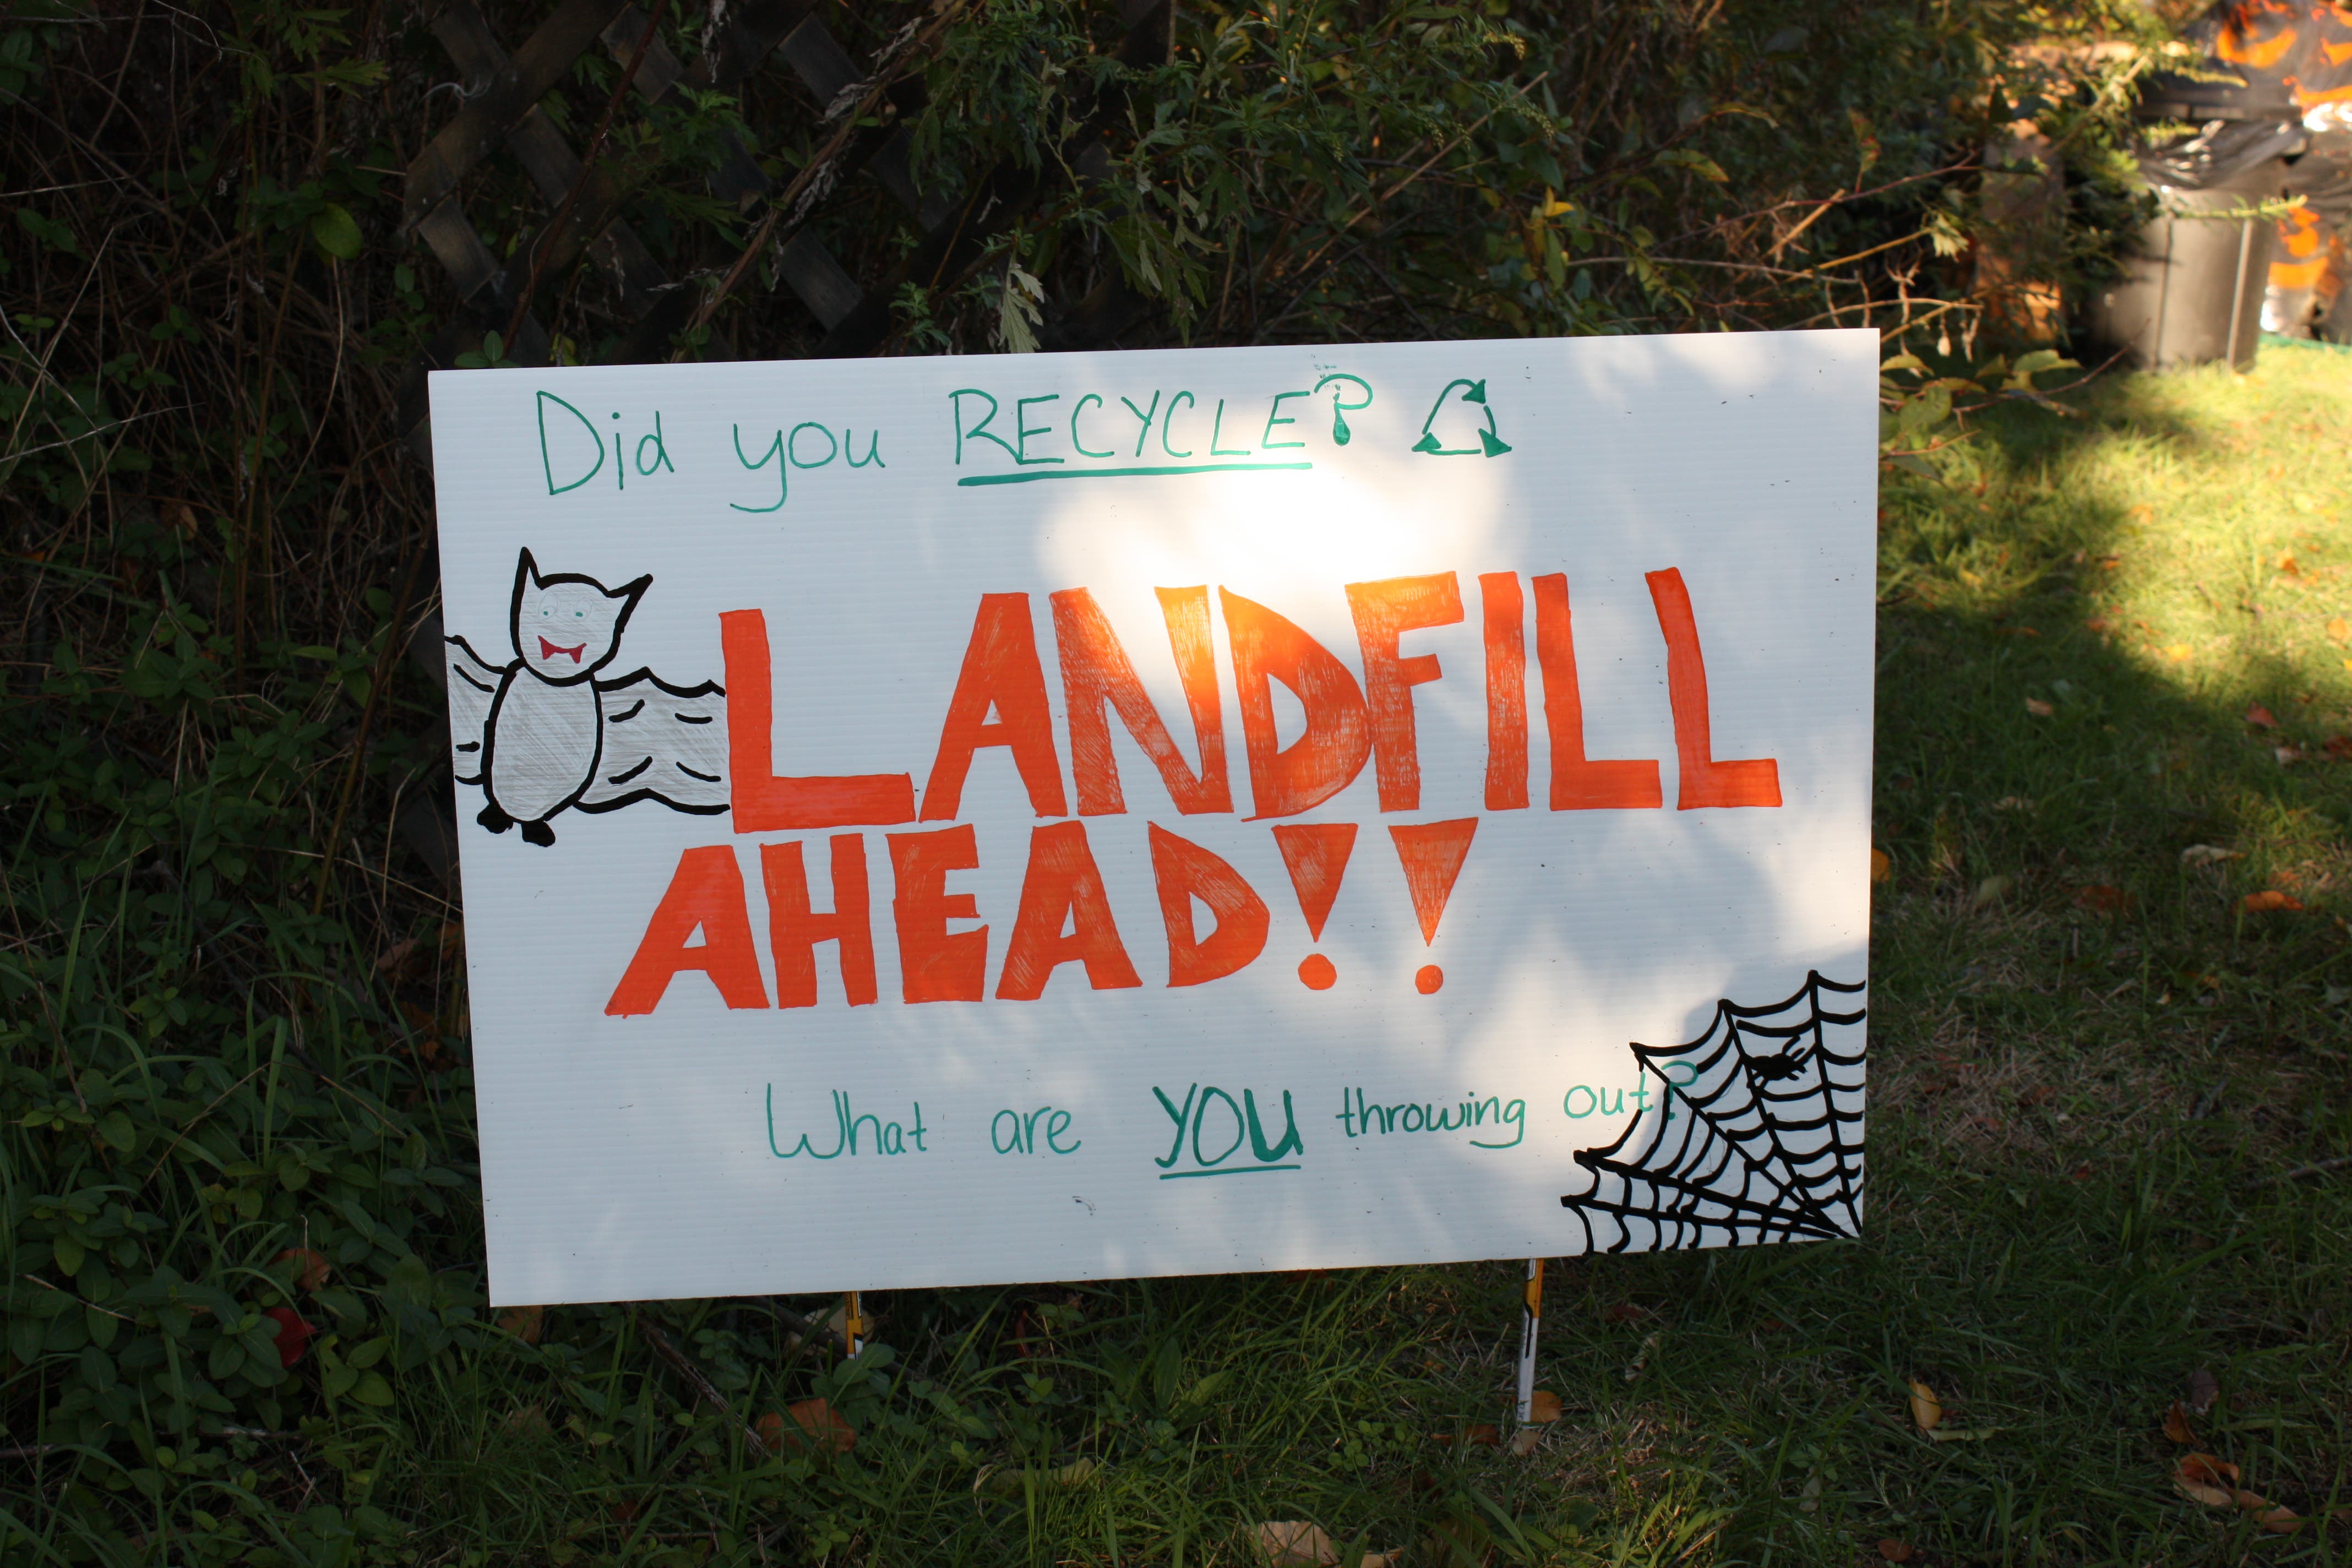 Did you RECYCLE?
LANDFILL
AHEAD!!
What are YOU throwing out?